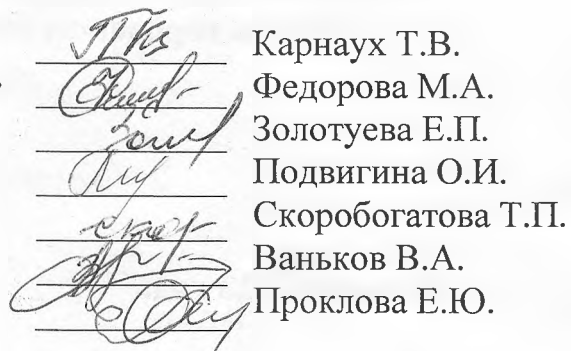 Карнаух Т.В.
Федорова М.А.
Золотуева Е.П.
Подвигина О.И.
Скоробогатова Т.П.
Ваньков В.А.
Проклова Е.Ю.